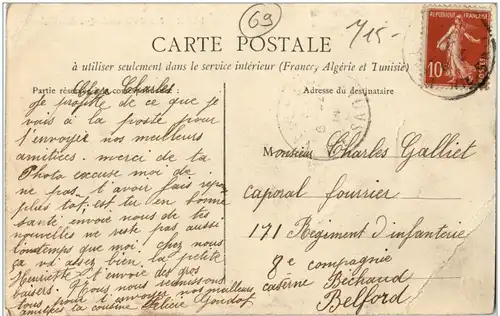 69
7/15-
CARTE POSTALE
à utiliser seulement dans le service intérieur (France, Algérie et Tunisie)
RÉPUBLIQUE FRANÇAISE
10
Partie réservée à la correspondance :
Adresse du destinataire
Cher Charles
Je profite de ce que je
vais à la poste pour
t'envoyer nos meilleurs
amitiées. merci de ta
Photo excuse moi de
ne pas t'avoir fais
plus tot, est tu en bonne
santé envoie nous de tes
nouvelles ne reste pas aussi
longtemps que moi! chez nous
ça va assez bien la petite
Henriette t'envoie des gros
baisers. nous nous
tous pour t'envoyer nos meilleurs
amitiées ta cousine Félicie Gondot
Monsieur Charles Galliet
caporal fourrier
171 Régiment d'infanterie
8e compagnie
caserne Béchaud
Belford